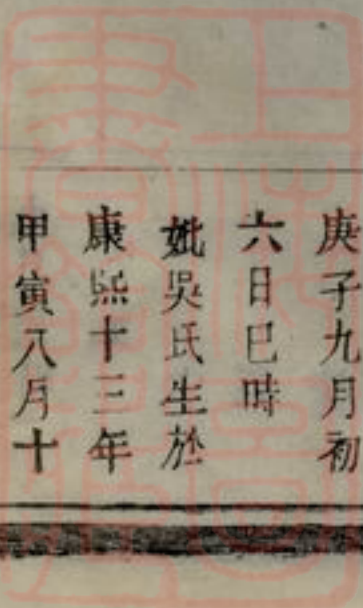 庚子九月初
六日巳時
妣吳氏生於
康熙十三年
甲寅八月十